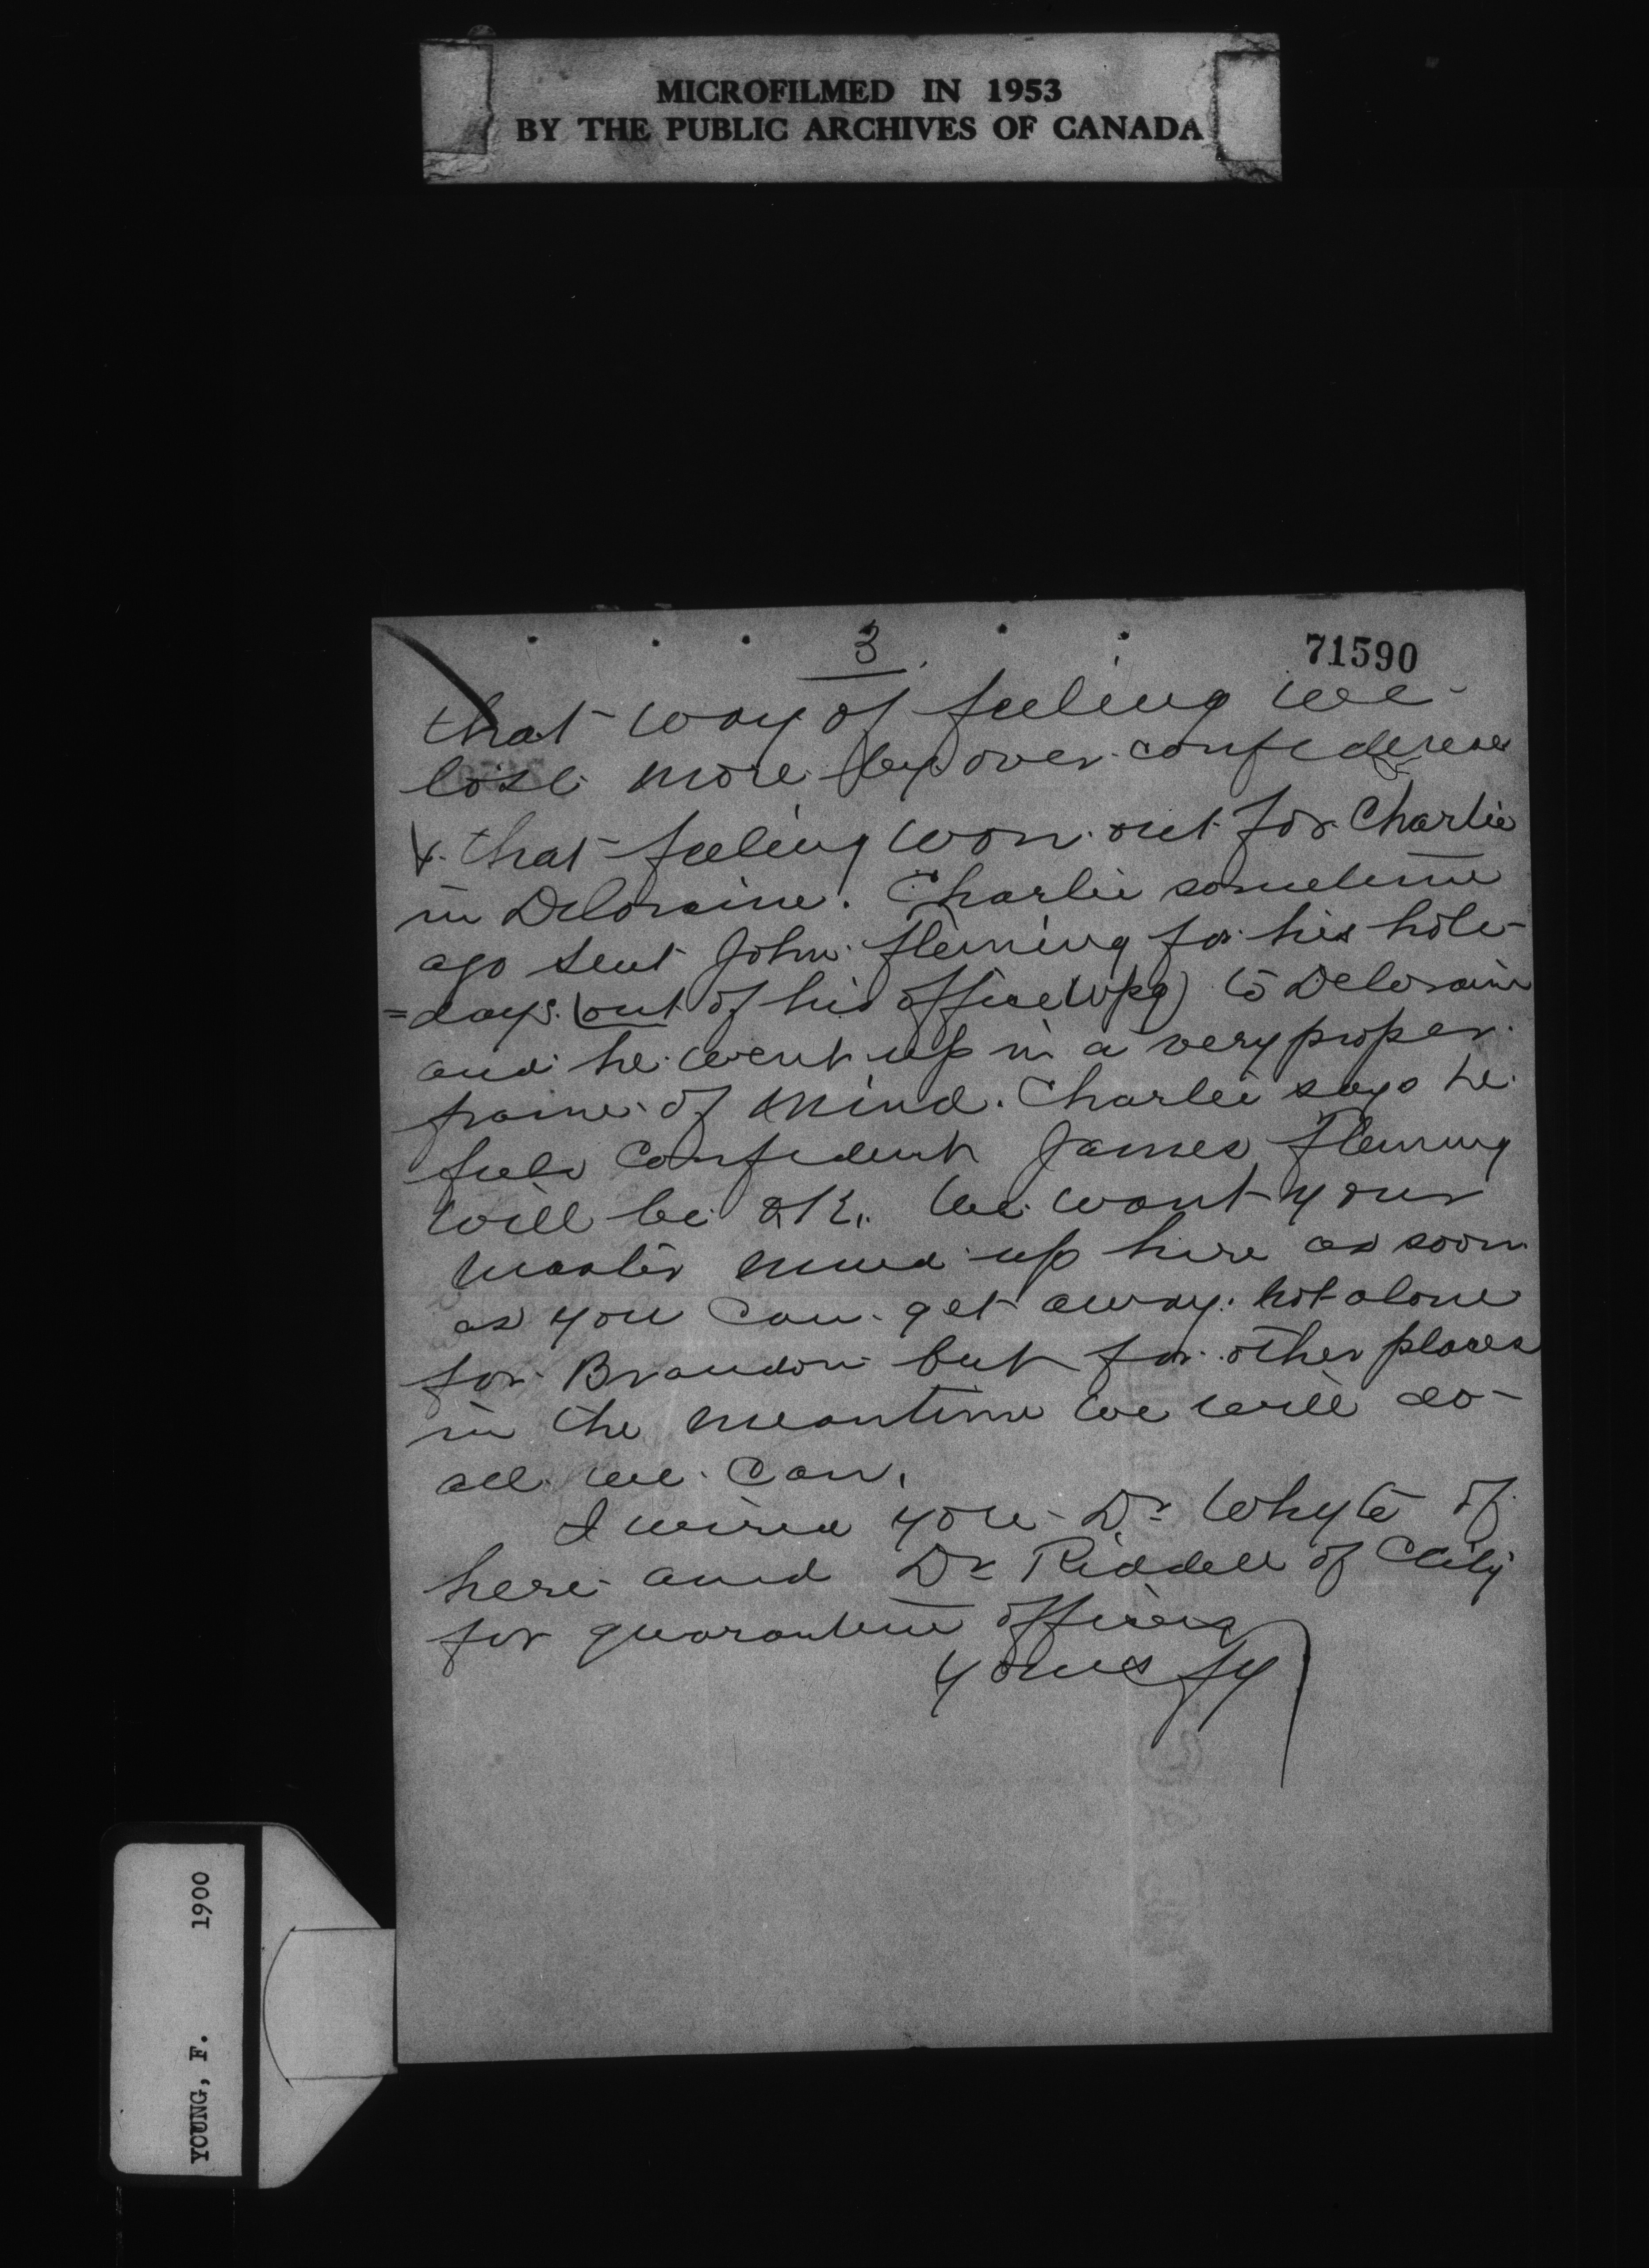 MICROFILMED IN 1953
BY THE PUBLIC ARCHIVES OF CANADA
3
71590
that way of feeling we
lose more by over confidence
& that feeling won out for Charlie
in Deloraine. Charlie sometime
ago sent John Fleming for his holi-
=days. (out of his office Wpg) to Deloraine
and he went up in a very proper
frame of mind. Charlie says he
feels confident James Fleming
will be OK. We want your
master mind up here as soon
as you can get away. not alone
for Brandon but for other places
in the meantime we will do
all we can.
I wired you Dr Whyte of
here and Dr Riddell of C City
for quarantine officers
yours fy
YOUNG, F. 1900